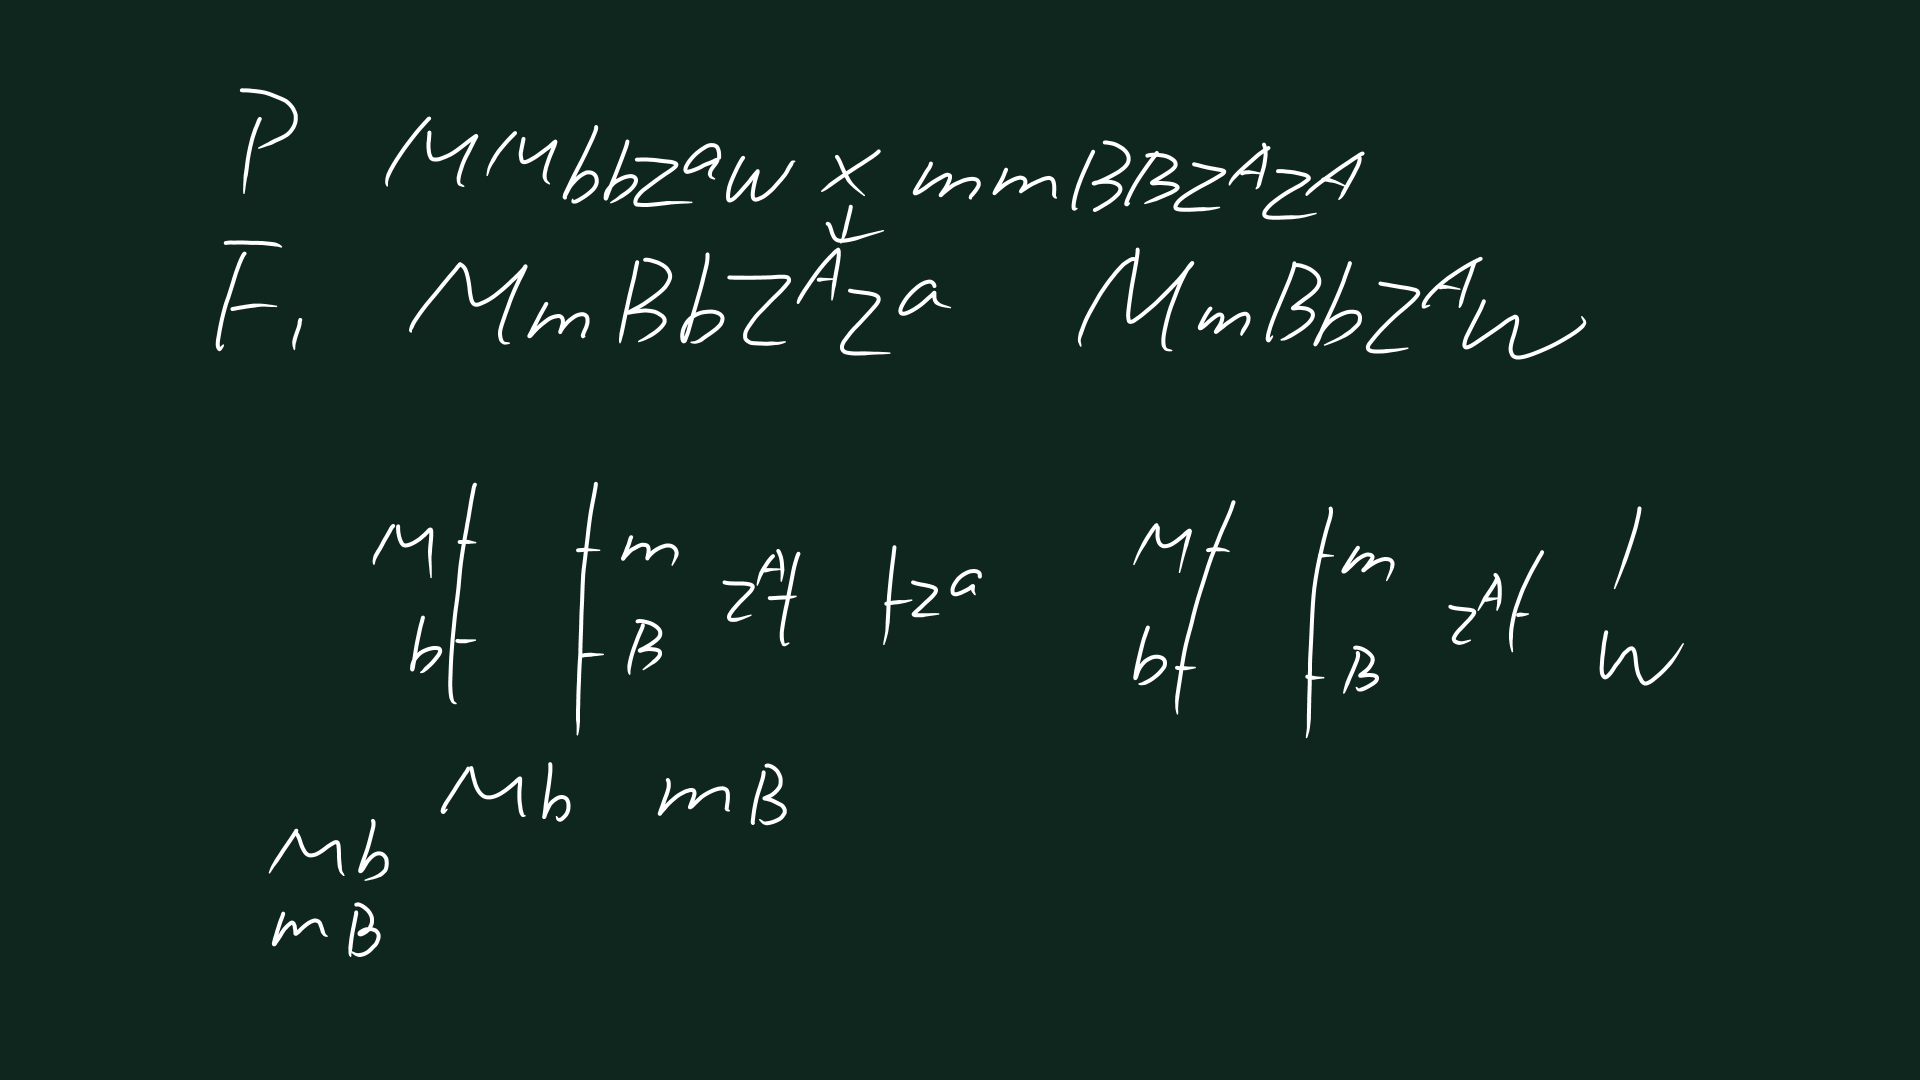 P MMbbZᵃW × mmBBZᴬZᴬ
↓
F₁ MmBbZᴬZᵃ MmBbZᴬW
M m Zᴬ Zᵃ M m Zᴬ
b B b B W
Mb mB
Mb
mB